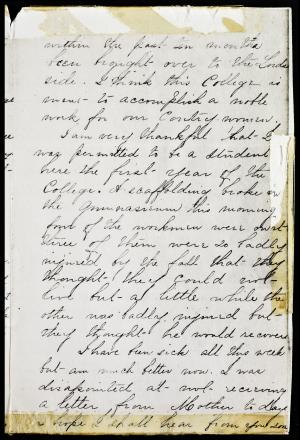 within the past ten months
been brought over to the Lords
side. I think this College is
meant to accomplish a noble
work for our Contry women.
I am very thankful that I
was permitted to be a student
here the first year of the
College. A scaffolding broke in
the Gymnasium this morning
four of the workmen were hurt
three of them were so badly
injured by the fall that they
thought they could not
live but a little while the
other was badly injured but
they thought he would recover.
I have been sick all this week
but am much better now. I was
disappointed at not recieving
a letter from Mother to day
I hope I shall hear from you soon